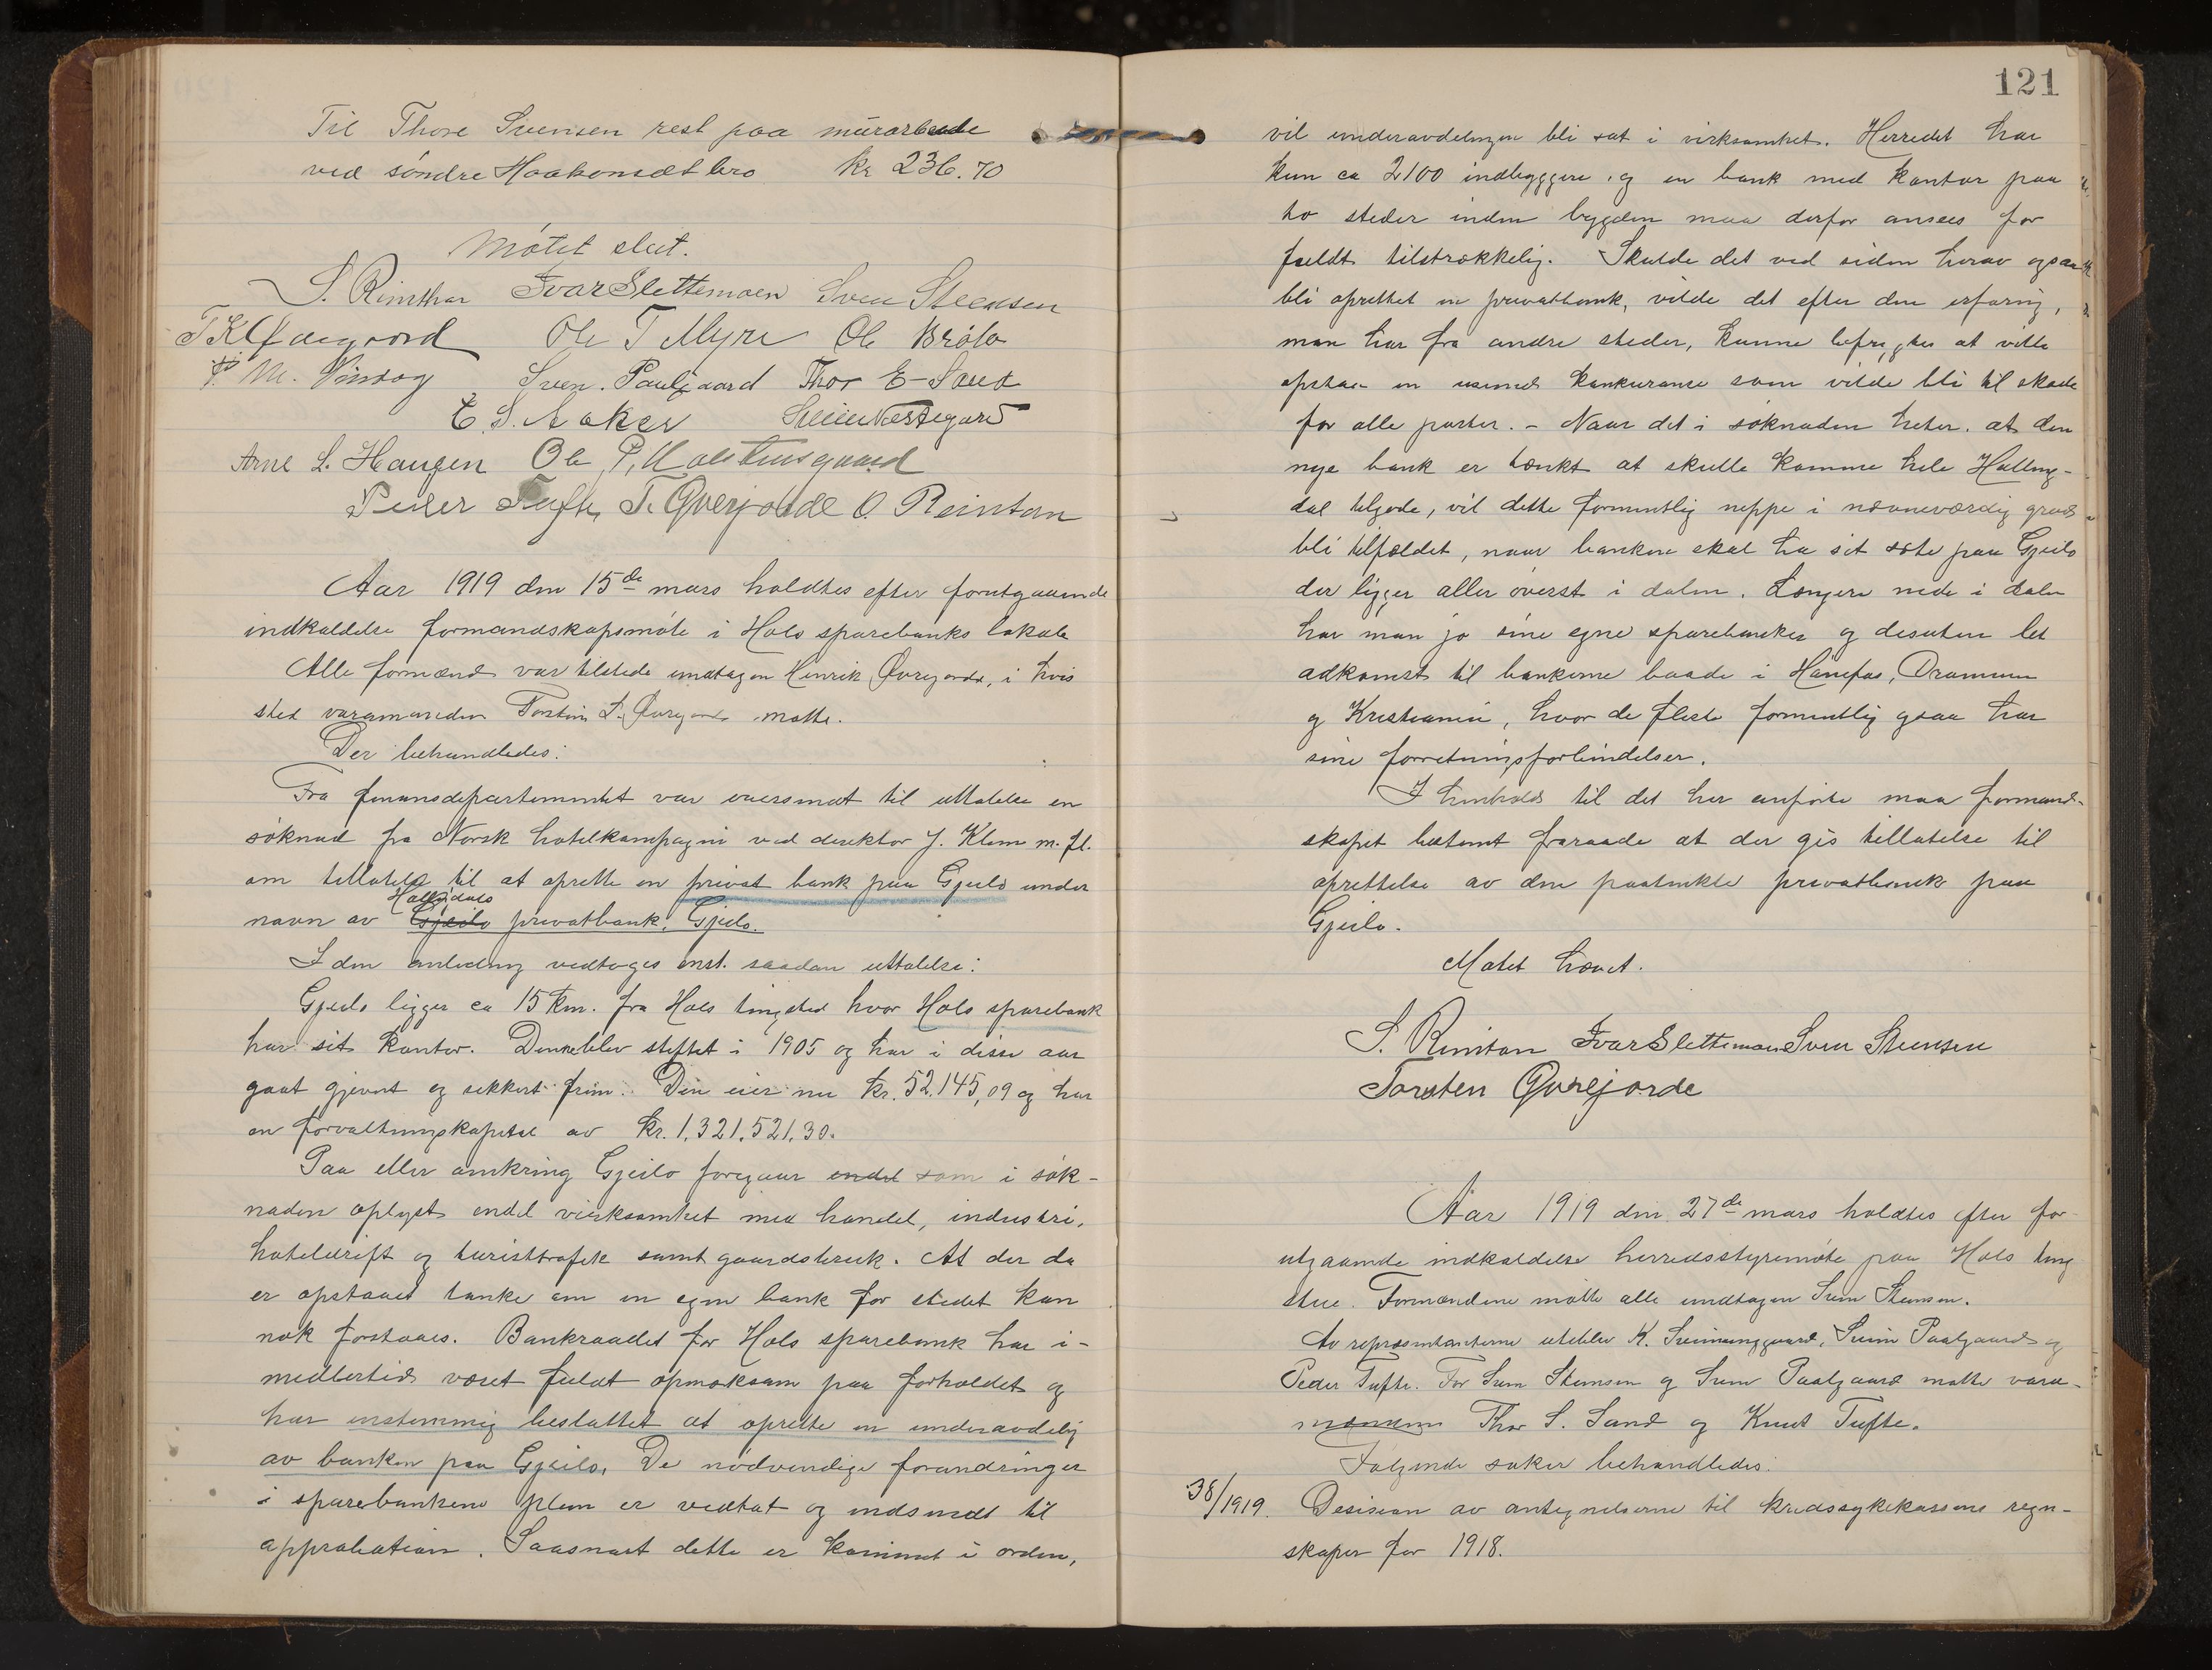 Til Thore Svensen rest paa murarbeide
ved söndre Haakonsæt bro kr 236.70
Mötet slut.
S. Reinton Ivar Slettemoen Sven Steensen
T K Öaegaard Ole T Myre Ole Bröto
Sven. Paulgaard Thor E. Sand
E. S. Aaker Svein Vestegard
Arne L. Haugen Ole P.
Peder Tufte, T. Qverjorde O. Reinton
Aar 1919 den 15de mars holdtes efter forutgaaende
indkaldelse formandskapsmöte i Hols sparebanks lokale
Alle formænd var tilstede undtagen Henrik Øvrejorde, i hvis
sted varamanden Torstein L. Øvrejorde møtte.
Der behandledes:
Fra finansdepartementet var oversendt til uttalelse en
söknad fra Norsk hotelkompagni ved direktør J. Klem m. fl.
om tillatelse til at oprette en privat bank paa Gjeilo under
Hallingdals
navn av Gjeilo privatbank, Gjeilo.
I den anledning vedtoges enst. saadan uttalelse:
Gjeilo ligger ca 15 km. fra Hols tingsted hvor Hols sparebank
har sit kontor. Denne blev stiftet i 1905 og har i disse aar
gaat gjevnt og sikkert frem. Den eier nu kr. 52.145,09 og har
en forvaltningskapital av kr. 1.321.521.30.
Paa eller omkring Gjeilo foregaar endel som i sök-
naden oplyst endel virksomhet med handel, industri,
hoteldrift og turisttrafik samt gaardsbruk. At der da
er opstaaet tanke om en egen bank for stedet kan
nok forstaaes. Bankraadet for Hols sparebank har i-
medlertid været fuldt opmerksom paa forholdet og
har enstemmig besluttet at oprette en underavdeling
av banken paa Gjeilo. De nödvendige forandringer
i sparebankens plan er vedtat og indsendt til
approbation. Saasnart dette er kommet i orden,
121
vil underavdelingen bli sat i virksomhet. Herredet har
kun ca 2100 indbyggere og en bank med kontor paa
to steder inden bygden maa derfor ansees for
fuldt tilstrækkelig. Skulde det ved siden herav ogsaa
bli oprettet en privatbank, vilde det efter den erfaring,
man har fra andre steder, kunne befryktes at ville
opstaa en usund konkurranse som vilde bli til skade
for alle parter. - Naar det i söknaden heter. at den
nye bank er tænkt at skulle komme hele Halling-
dal tilgode, vil dette formentlig neppe i nævneværdig grad
bli tilfældet, naar banken skal ha sit sæte paa Gjeilo
der ligger aller överst i dalen. Længere nede i dalen
har man jo sine egne sparebanker og desuten let
adkomst til bankerne baade i Hönefos, Drammen
og Kristiania, hvor de fleste formentlig ogsaa har
sine forretningsforbindelser.
I henhold til det her anförte maa formand-
skapet bestemt fraraade at der gis tillatelse til
oprettelse av den paatænkte privatbank paa
Gjeilo.
Mötet hævet.
S. Reinton Ivar Slettemoen Sven Steensen
Torsten Qvrejorde
Aar 1919 den 27de mars holdtes efter for-
utgaaende indkaldelse herredsstyremöte paa Hols ting
stue. Formændene mötte alle undtagen Sven Steensen.
Av repræsentanterne uteblev K. Sveinunggaard, Svein Paalgaard og
Peder Tufte. For Sven Steensen og Svein Paalgaard møtte vara-
mændene Thor S. Sand og Knut Tufte.
Følgende saker behandledes:
38/1919. Desision av antegnelserne til kredssykekassens regn-
skaper for 1918.